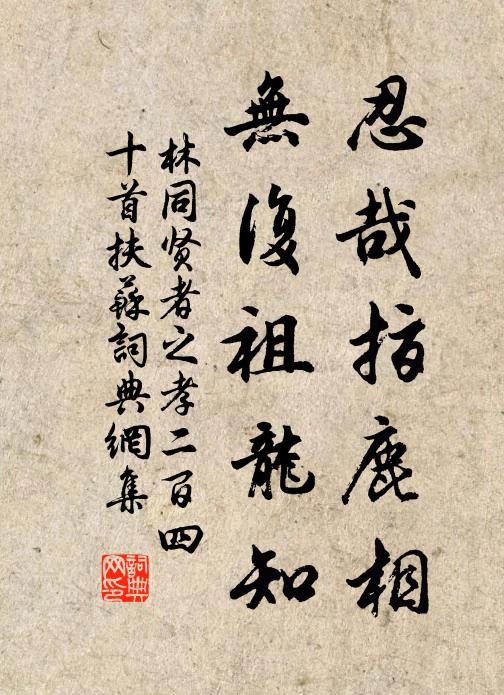 忍哉指鹿相
無復祖龍知
林同贤者之孝二百四
十首扶蘇詞典網集
詞典
网印